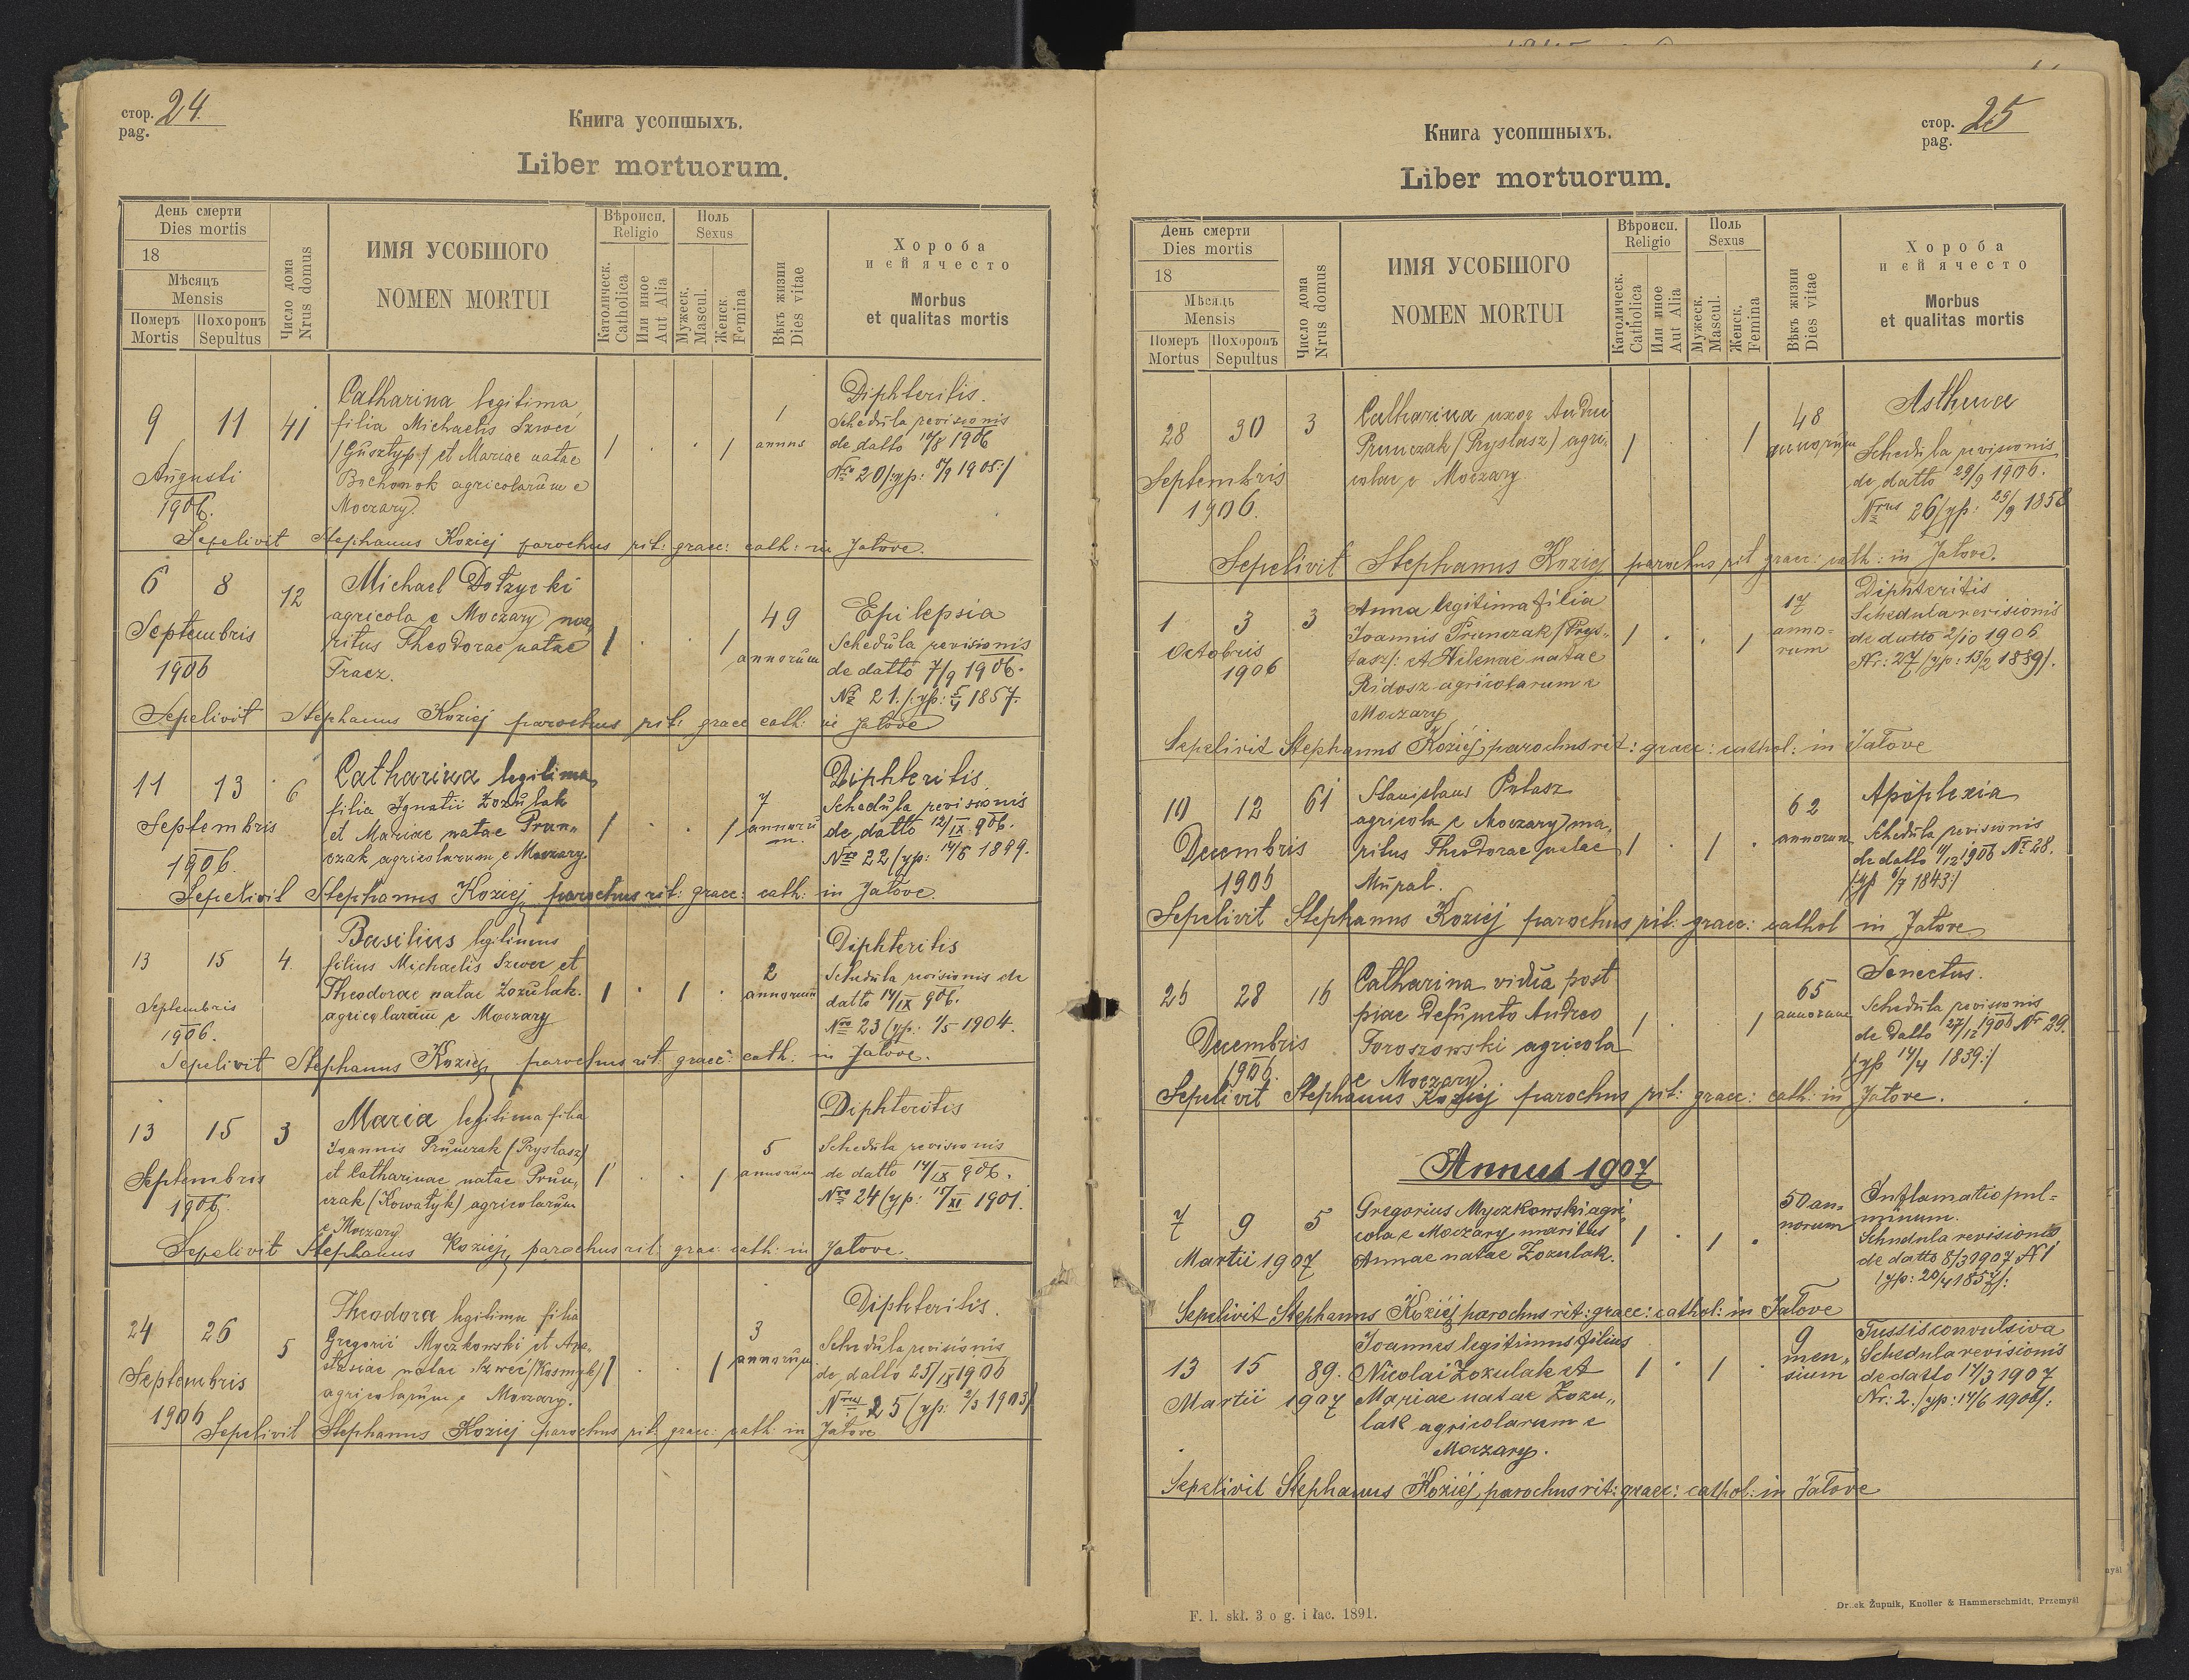 стор. 24.
pag.
Книга усопшыхъ.
Liber mortuorum.
День смерти
Dies mortis
18
Мѣсяцъ
Mensis
Померъ Похоронъ
Mortis Sepultus
Число дома
Nrus domus
ИМЯ УСОБШОГО
NOMEN MORTUI
Вѣроисп.
Religio
Католическ.
Catholica
Или иное
Aut Alia
Поль
Sexus
Мужеск.
Mascul.
Женск.
Femina
Вѣкъ жизни
Dies vitae
Хороба
и ей ячесто
Morbus
et qualitas mortis
9 11 41
Augusti
1906.
Catharina legitima
filia Michaelis Szwec
/Gusztyp/ et Mariae natae
Bochonok agricolarum e
Moczary.
1 . . 1
1
annus
Diphteritis.
Schedula revisionis
de datto 10/8 1906
Nro 20/:yp: 5/9 1905:/
Sepelivit Stephanus Koziej parochus rit: graec: cath: in Jałove.
6 8 12
Septembris
1906
Michael Dołzycki
agricola e Moczary ma,
ritus Theodorae natae
Tracz.
1 . . 1
49
annorum
Epilepsia
Schedula revisionis
de datto 7/9 1906.
No 21./:yp: 5/4 1857.
Sepelivit Stephanus Koziej parochus rit: graec cath: in Jałove
11 13 6
Septembris
1906.
Catharina legitima
filia Ignatii Zozulak
et Mariae natae Prun„
czak agricolarum e Moczary.
1 . . 1
7
annoru
m.
Diphteritis.
Schedula revisionis
de datto 12/IX 906.
Nro 22/yp: 14/8 1899.
Sepelivit Stephanus Koziej parochus rit: graec: cath: in Jałove.
13 15 4.
Septembris
1906.
Basilius legitimus
filius Michaelis Szwec et
Theodorae natae Zozulak.
agricolarum e Moczary
1 . 1 .
2
annorum
Diphteritis
Schedula revisionis de
datto 14/IX 906.
Nro 23 (yp: 1/5 1904.
Sepelivit Stephanus Koziej parochus rit: graec: cath: in Jałove.
13 15 3
Septembris
1906.
Maria legitima filia
Joannis Prunczak /Prystasz/
et Catharinae natae Prun„
czak (Kowałyk) agricolarum
e Moczary
1 . . 1
5
annorum
Diphteritis
Schedula revisionis
de datto 14/IX 906.
Nro 24 (yp: 15/XI 1901.
Sepelivit Stephanus Koziej, parochus rit: grae: cath: in Jałove.
24 26 5
Septembris
1906
Theodora legitima filia
Gregorii Myczkowski et Ana„
stasiae natae Szwec/Kosmyk/
agricolarum e Moczary.
1 . . 1
3
annorum
Diphteritis.
Schedula revisionis
de datto 25/IX 1906
Nrus 25 (yp: 2/3 1903/
Sepelivit Stephanus Koziej parochus rit: graec: cath: in Jałove
стор. 25
pag.
Книга усопшныхъ.
Liber mortuorum.
День смерти
Dies mortis
18
Мѣсяцъ
Mensis
Померъ Похоронъ
Mortus Sepultus
Число дома
Nrus domus
ИМЯ УСОБШОГО
NOMEN MORTUI
Вѣроисп.
Religio
Католическ.
Catholica
Или иное
Aut Alia
Поль
Sexus
Мужеск.
Mascul.
Женск.
Femina
Вѣкъ жизни
Dies vitae
Хороба
и ей ячесто
Morbus
et qualitas mortis
28 30 3
Septembris
1906.
Catharina uxor Andrei
Prunczak /Prystasz/ agri„
colae e Moczary
1 . . 1
48
annorum
Asthma
Schedula revisionis
de datto 29/9 1906.
Nrus 26/yp: 29/9 1858
Sepelivit Stephanus Koziej parochus rit graec: cath: in Jałove.
1 3 3
Octobris
1906
Anna legitima filia
Joannis Prunczak /Prys„
tasz/: et Helenae natae
Ridosz agricolarum e
Moczary
1 . . 1
17
anno=
rum
Diphteritis
Schedula revisionis
de datto 2/10 1906
Nr: 27 /yp: 13/2 1889/.
Sepelivit Stephanus Koziéj, parochus rit: graec: cathol: in Jałove
10 12 61
Decembris
1906
Stanislaus Pułasz
agricola e Moczary ma,
ritus Theodorae natae
Mupał.
1 . 1 .
62
annorum
Apoplexia
Schedula revisionis
de datto 11/12 1906 No 28.
/yp 6/7 1843:/
Sepelivit Stephanus Koziej parochus rit: graec: cathol in Jałove
26 28 16
Decembris
1906.
Catharina vidua post
piae defuncto Andreo
Toroszowski agricola
e Moczary.
1 . . 1
65
annorum
Senectus.
Schedula revisionis
de datto 27/12 1906 Nr 29.
/yp 14/4 1839:/
Sepelivit Stephanus Koziej parochus rit: graec: cath: in Jałove.
Annus 1907
7 9 5
Martii 1907
Gregorius Myczkowski agri
cola e Moczary maritus
Annae natae Zozulak.
1 . 1 .
50 an=
norum
Inflamatio pul=
minum.
Schudula revisionis
de datto 8/3 1907 N 1
/yp: 20/4 1857/:
Sepelivit Stephanus Koziéj parochus rit: graec: cathol: in Jałove
13 15 89.
Martii 1907
Joannes legitimus filius
Nicolai Zozulak et
Mariae natae Zozu„
lak agricolarum e
Moczary.
1 . 1 .
9
men„
sium
Tussis convulsiva
Schedula revisionis
de datto 14/3 1907
Nr: 2. /yp: 14/6 1906/:
Sepelivit Stephanus Koziéj, parochus rit: graec: cathol: in Jałove
F. 1. skł. 3 o g. i łac. 1891.
Župnik, Knoller & Hammerschmidt, Przemyśl